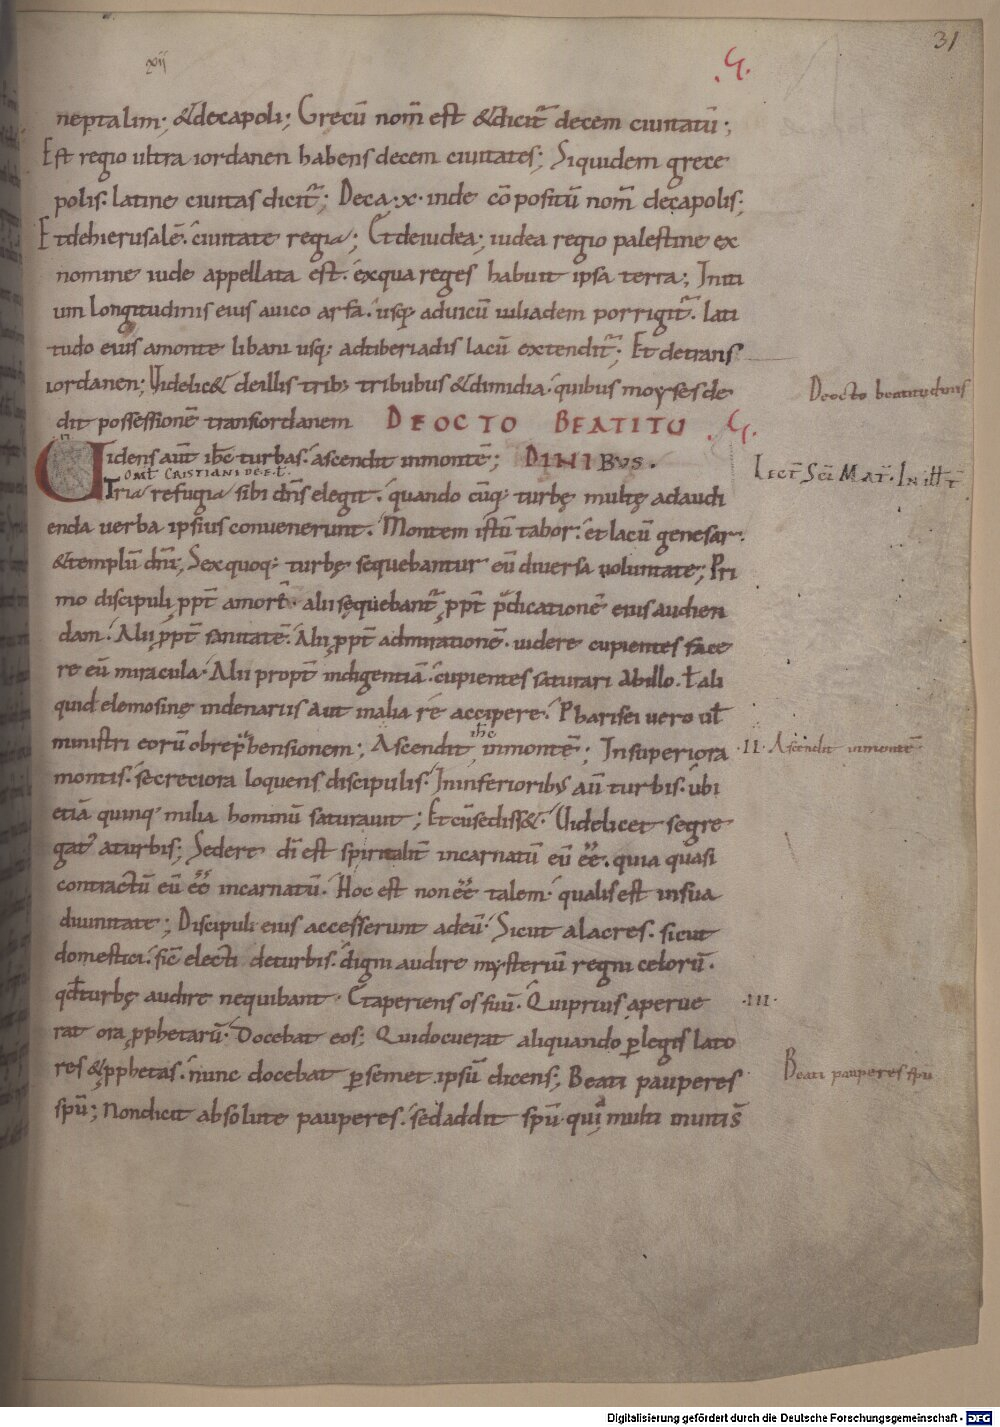 31
xii
neptalim; &decapoli; Grecū nom̄ est &dicit̄ decem ciuitatū;
Est regio ultra iordanen habens decem ciuitates; Siquidem grece
polis. latine ciuitas dicit̄; Deca .x. inde cōpositū nom̄ decapolis;
Etdehierusalē. ciuitate regia; Etdeiudea; iudea regio palestine ex
nomine iude appellata est. exqua reges habuit ipsa terra; Initi
um longitudinis eius auico arfa. usq; aduicū iuliadem porrigit̄. lati
tudo eius amonte libani usq; adtiberiadis lacū extendit̄; Et detrans
iordanen; Videlic& deillis trib; tribubus &dimidia. quibus moyses de
dit possessionē transiordanem DEOCTO BEATITU
Deocto beatitudinis
Uidens aut̄ ih̄c turbas. ascendit inmontē; DINIBVS.
Lect̄ Sc̄i Mat̄. In ill̄ t̄
OM̄L̄ CRISTIANI DE E.L̄.
Tria refugia sibi dn̄s elegit. quando cūq; turbę multę adaudi
enda uerba ipsius conuenerunt. Montem istū tabor. et lacū genesar.
&templū dn̄i; Sexquoq; turbę sequebantur eū diuersa uoluntate; Pri
mo discipuli ppt̄ amorē. alii sequebant̄ ppt̄ p̄dicationē eius audien
dam. Alii ppt̄ sanitatē. Alii ppt̄ admirationē. uidere cupientes face
re eū miracula. Alii propt̄ indigentiā. cupientes saturari abillo. ł ali
quid elemosinę indenariis aut inalia re accipere. Pharisei uero uł
ministri eorū obrep̄hensionem; Ascendit ih̄c inmontē; Insuperiora
.II. Ascendit inmontē
montis. secreciora loquens discipulis. Ininferiorib; aū turbis. ubi
etiā quinq; milia hominū saturauit; Etcūsediss&. Videlicet segre
gat' aturbis; Sedere dn̄i est spiritalit̄ incarnatū eū eē. quia quasi
contractū eū eē incarnatū. Hoc est non eē talem. qualis est insua
diuinitate; Discipuli eius accesserunt adeū. Sicut alacres. sicut
domestici. sic̄ electi deturbis. digni audire mysteriū regni celorū.
qđ turbę audire nequibant. Etaperiens os suū. Quiprius aperue
.III.
rat ora pphetarū. Docebat eos; Quidocuerat aliquando p legis lato
res &pphetas. nunc docebat p semet ipsū dicens; Beati pauperes
Beati pauperes spū
spū; Nondicit absolute pauperes. sedaddit spū. quia multi inuiti s̄
Digitalisierung gefördert durch die Deutsche Forschungsgemeinschaft - DFG